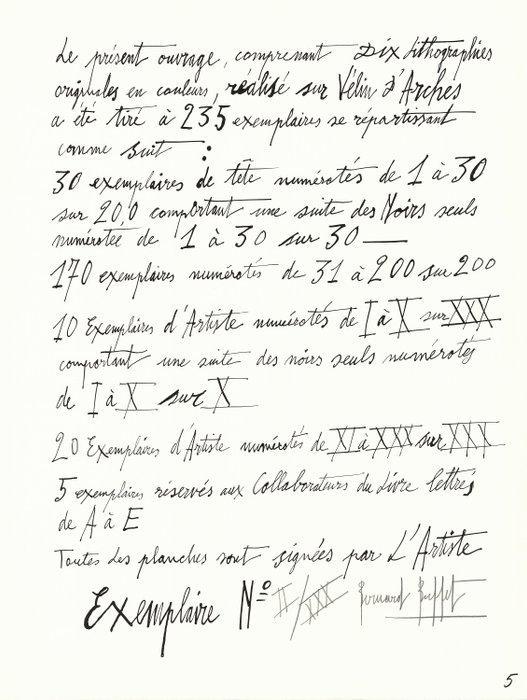 Le présent ouvrage, comprenant Dix lithographies
originales en couleurs, réalisé sur Vélin d'Arches
a été tiré à 235 exemplaires se répartissant
comme suit :
30 exemplaires de tête numérotés de 1 à 30
sur 200 comportant une suite des Noirs seuls
numérotée de 1 à 30 sur 30 —
170 exemplaires numérotés de 31 à 200 sur 200
10 Exemplaires d'Artiste numérotés de I à X sur XXX
comportant une suite des noirs seuls numérotés
de I à X sur X
20 Exemplaires d'Artiste numérotés de XI à XXX sur XXX
5 exemplaires réservés aux Collaborateurs du Livre lettrés
de A à E
Toutes les planches sont signées par L'Artiste
Exemplaire Nº II/XXX Bernard Buffet
5